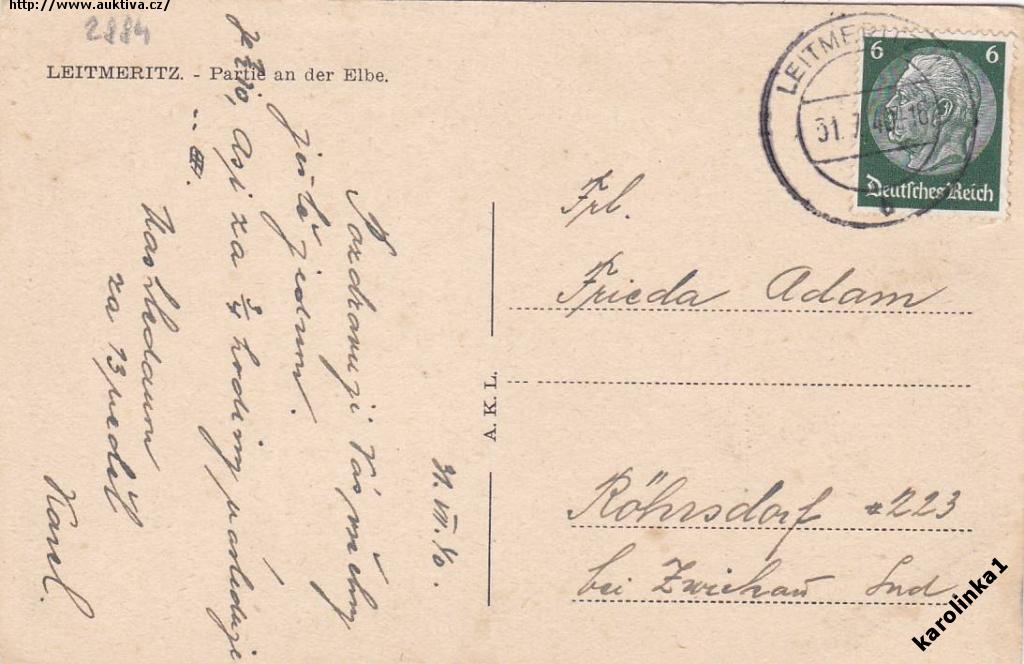 http://www.auktiva.cz/
2884
LEITMERITZ. - Partie an der Elbe.
LEITMERITZ
31.7.40-18
b
6 6
Deutsches Reich
Frl.
Frieda Adam
Röhrsdorf #223
bei Zwickau Sud
A. K. L.
31.VII.40.
Pozdravuji Vás všechny
ještě jednou.
Asi za 3/4 hodiny následuje
Nashledanou
za 13 neděl
Karel.
karolinka1